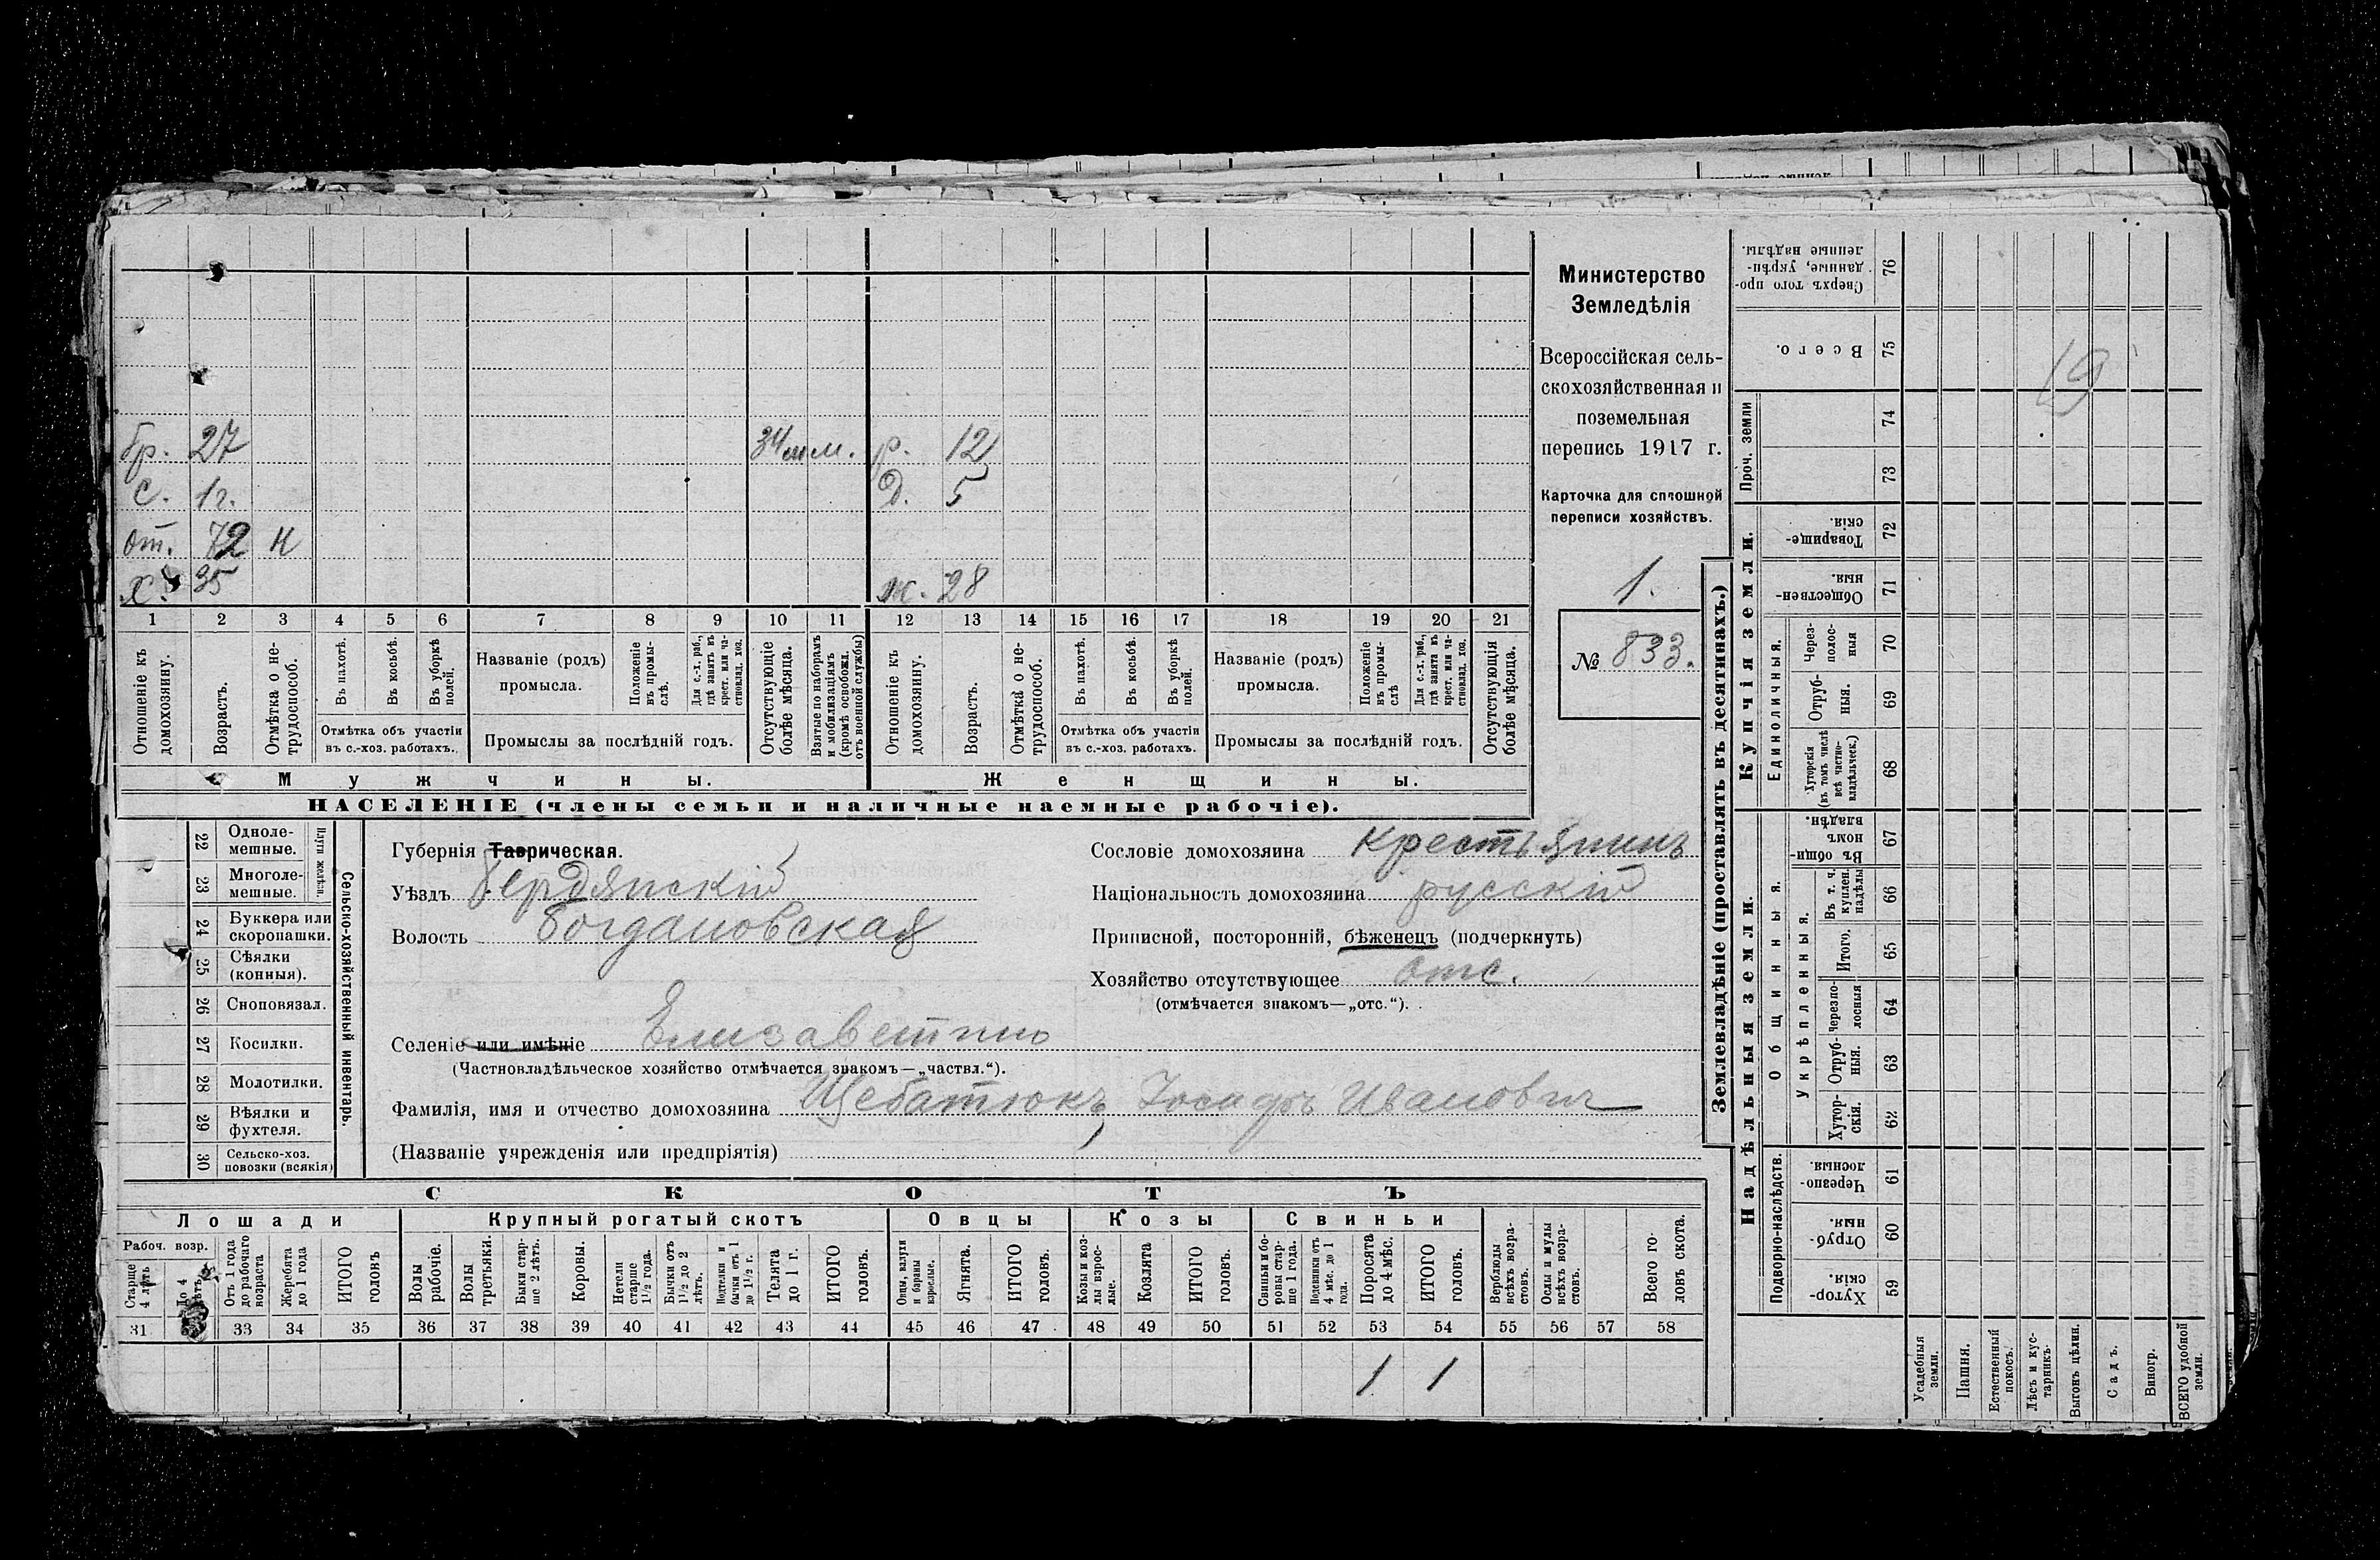 бр. 27 34 м м. р. 12
с. 1 г. д. 5
от. 72 н
х. 35 ж. 28
1 2 3 4 5 6 7 8 9 10 11 12 13 14 15 16 17 18 19 20 21
Отношеніе къ домохозяину.
Возрастъ.
Отмѣтка о не-трудоспособ.
Въ пахотѣ.
Въ косьбѣ.
Въ уборкѣ полей.
Отмѣтка объ участіи
въ с.-хоз. работахъ.
Названіе (родъ)
промысла.
Положеніе въ промы-слѣ.
Для с.-х. раб., гдѣ занятъ въ крест. или ча-стновлад. хоз.
Промыслы за послѣдній годъ.
Отсутствующіе болѣе мѣсяца.
Взятые по наборамъ и мобилизаціямъ (кромѣ освобожд. отъ военной службы)
Отношеніе къ домохозяину.
Возрастъ.
Отмѣтка о не-трудоспособ.
Въ пахотѣ.
Въ косьбѣ.
Въ уборкѣ полей.
Отмѣтка объ участіи
въ с.-хоз. работахъ.
Названіе (родъ)
промысла.
Положеніе въ промы-слѣ
Для с.-х. раб., гдѣ занята въ крест. или ча-стновлад. хоз.
Промыслы за послѣдній годъ.
Отсутствующія болѣе мѣсяца.
Мужчины.
Женщины.
НАСЕЛЕНІЕ (члены семьи и наличные наемные рабочіе).
Министерство
Земледѣлія
Всероссійская сель-
скохозяйственная и
поземельная
перепись 1917 г.
Карточка для сплошной
переписи хозяйствъ.
1.
№ 833.
22 Одноле-мешные.
23 Многоле-мешные.
Плуги желѣзн.
24 Буккера или скоропашки.
25 Сѣялки (конныя).
26 Сноповязал.
27 Косилки.
28 Молотилки.
29 Вѣялки и фухтеля.
30 Сельско-хоз. повозки (всякія)
Сельско-хозяйственный инвентарь.
Губернія Таврическая.
Уѣздъ Бердянскій
Волость Богдановская
Селеніе или имѣніе Елизаветино
(Частновладѣльческое хозяйство отмѣчается знакомъ—„частвл.“).
Фамилія, имя и отчество домохозяина Щебатюкъ Іосифъ Иванович
(Названіе учрежденія или предпріятія)
Сословіе домохозяина крестьянинъ
Національность домохозяина русскій
Приписной, посторонній, бѣженецъ (подчеркнуть)
Хозяйство отсутствующее отс.
(отмѣчается знакомъ—„отс.“).
СКОТЪ
Лошади
Крупный рогатый скотъ
Овцы
Козы
Свиньи
Рабоч. возр.
Старше 4 лѣтъ
До 4 лѣтъ
Отъ 1 года до рабочаго возраста
Жеребята до 1 года
ИТОГО головъ
Волы рабочіе.
Волы третьяки.
Быки стар-ше 2 лѣтъ.
Коровы.
Нетели старше 1½ года.
Бычки отъ 1½ до 2 лѣтъ.
Подтелки и бычки отъ 1 до 1½ г.
Телята до 1 г.
ИТОГО головъ.
Овцы, валухи и бараны взрослые.
Ягнята.
ИТОГО головъ.
Козы и коз-лы взрос-лые.
Козлята
ИТОГО головъ.
Свиньи и бо-ровы стар-ше 1 года.
Подсвинки отъ 4 мѣс. до 1 года.
Поросята до 4 мѣс.
ИТОГО головъ.
Верблюды всѣхъ возра-стовъ.
Ослы и мулы всѣхъ возра-стовъ.
Всего го-ловъ скота.
31 33 34 35 36 37 38 39 40 41 42 43 44 45 46 47 48 49 50 51 52 53 54 55 56 57 58
1 1
Землевладѣніе (проставлять въ десятинахъ.)
Купчія земли.
Надѣльныя земли.
Сверхъ того про-данные, укрѣп-ленные надѣлы. 76
Всего. 75
19
Проч. земли
74
73
Товарище-скія. 72
Обществен-ныя. 71
Единоличныя.
Через-полос-ныя 70
Отруб-ныя. 69
Хуторскія (въ томъ числѣ всѣ частно-владѣльческ.) 68
Въ общин-номъ владѣн. 67
Общинныя.
Укрѣпленныя.
Въ т. ч. куплен. надѣлы 66
Итого. 65
черезпо-лосныя 64
Отруб-ныя. 63
Хутор-скія. 62
Подворно-наслѣдств.
Черезпо-лосныя. 61
Отруб-ныя. 60
Хутор-скія. 59
Усадебныя земли.
Пашня.
Естественный покосъ.
Лѣсъ и кус-тарникъ.
Выгонъ цѣлин.
Садъ.
Виногр.
ВСЕГО удобной земли.